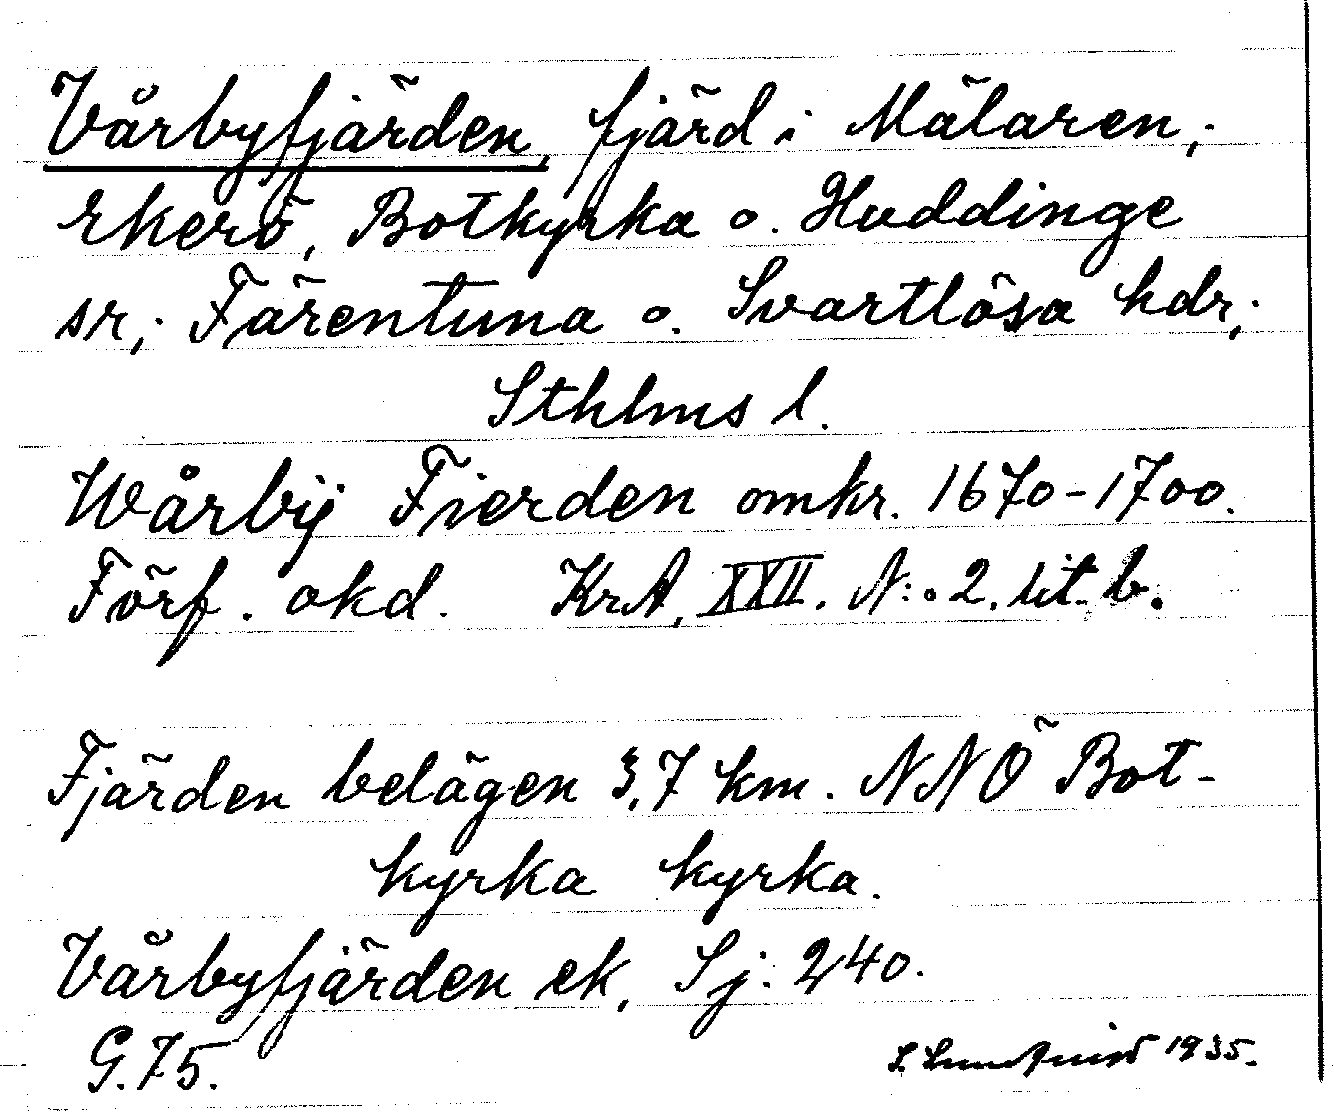 Vårbyfjärden, fjärd i Mälaren;
Ekerö, Botkyrka o. Huddinge
sr; Färentuna o. Svartlösa hdr;
Sthlms l.
Wårbÿ Fierden omkr. 1670-1700.
Förf. okd. KrA, XXII. N:o 2. lit. b.
Fjärden belägen 3,7 km. NNÖ Bot-
kyrka kyrka.
Vårbyfjärden ek, Sj. 240.
G. 75. S. Lundqvist 1935.